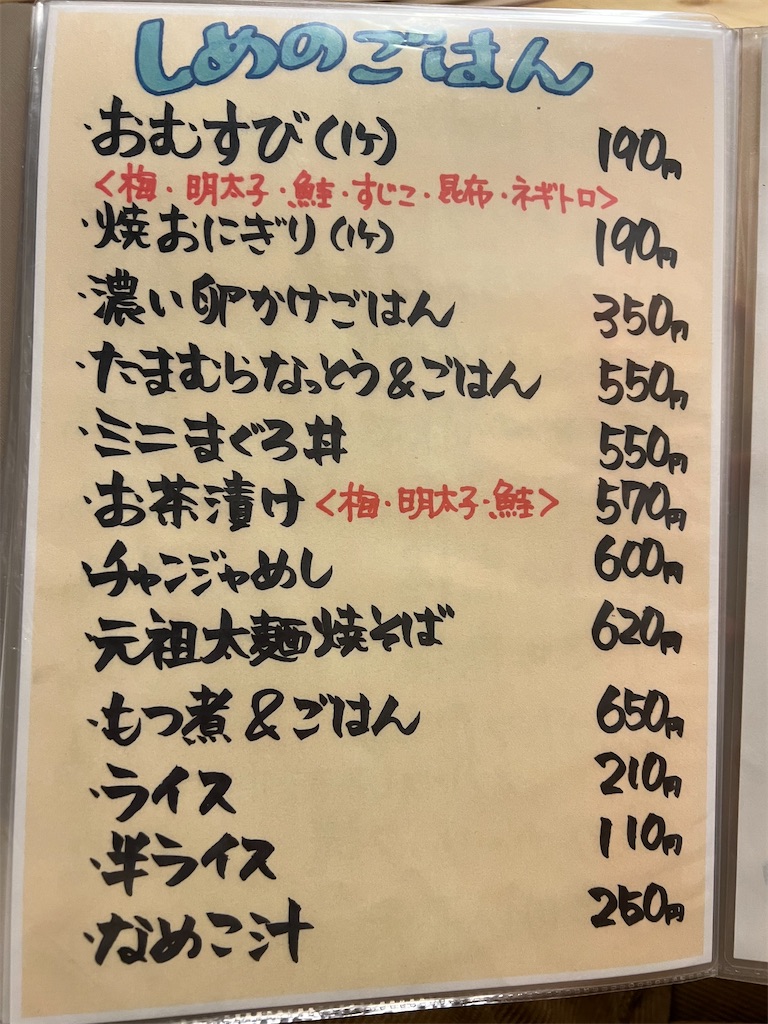 しめのごはん
・おむすび(1ケ) 190円
<梅・明太子・鮭・すじこ・昆布・ネギトロ>
・焼おにぎり(1ケ) 190円
・濃い卵かけごはん 350円
・たまむらなっとう&ごはん 550円
・ミニまぐろ丼 550円
・お茶漬け<梅・明太子・鮭> 570円
・チャンジャめし 600円
・元祖太麺焼そば 620円
・もつ煮&ごはん 650円
・ライス 210円
・半ライス 110円
・なめこ汁 250円